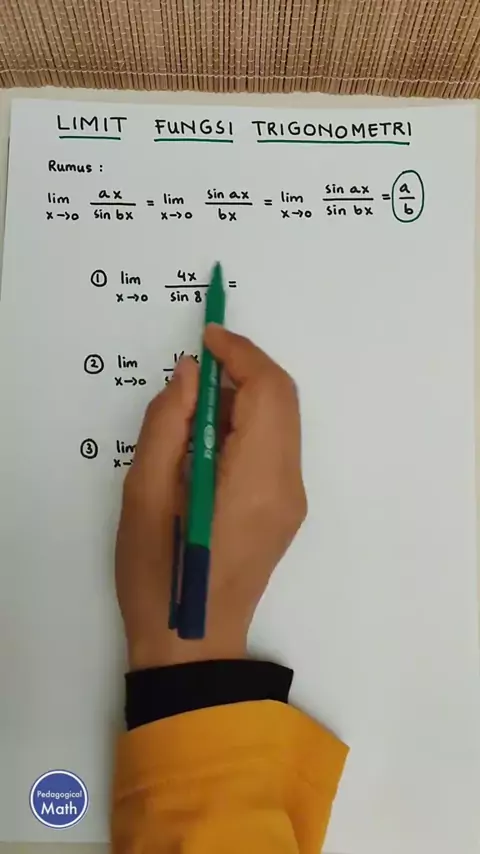 LIMIT FUNGSI TRIGONOMETRI
Rumus :
lim x→0 ax/sin bx = lim x→0 sin ax/bx = lim x→0 sin ax/sin bx = a/b
① lim x→0 4x/sin 8 =
② lim x→0
③ lim
Pedagogical
Math